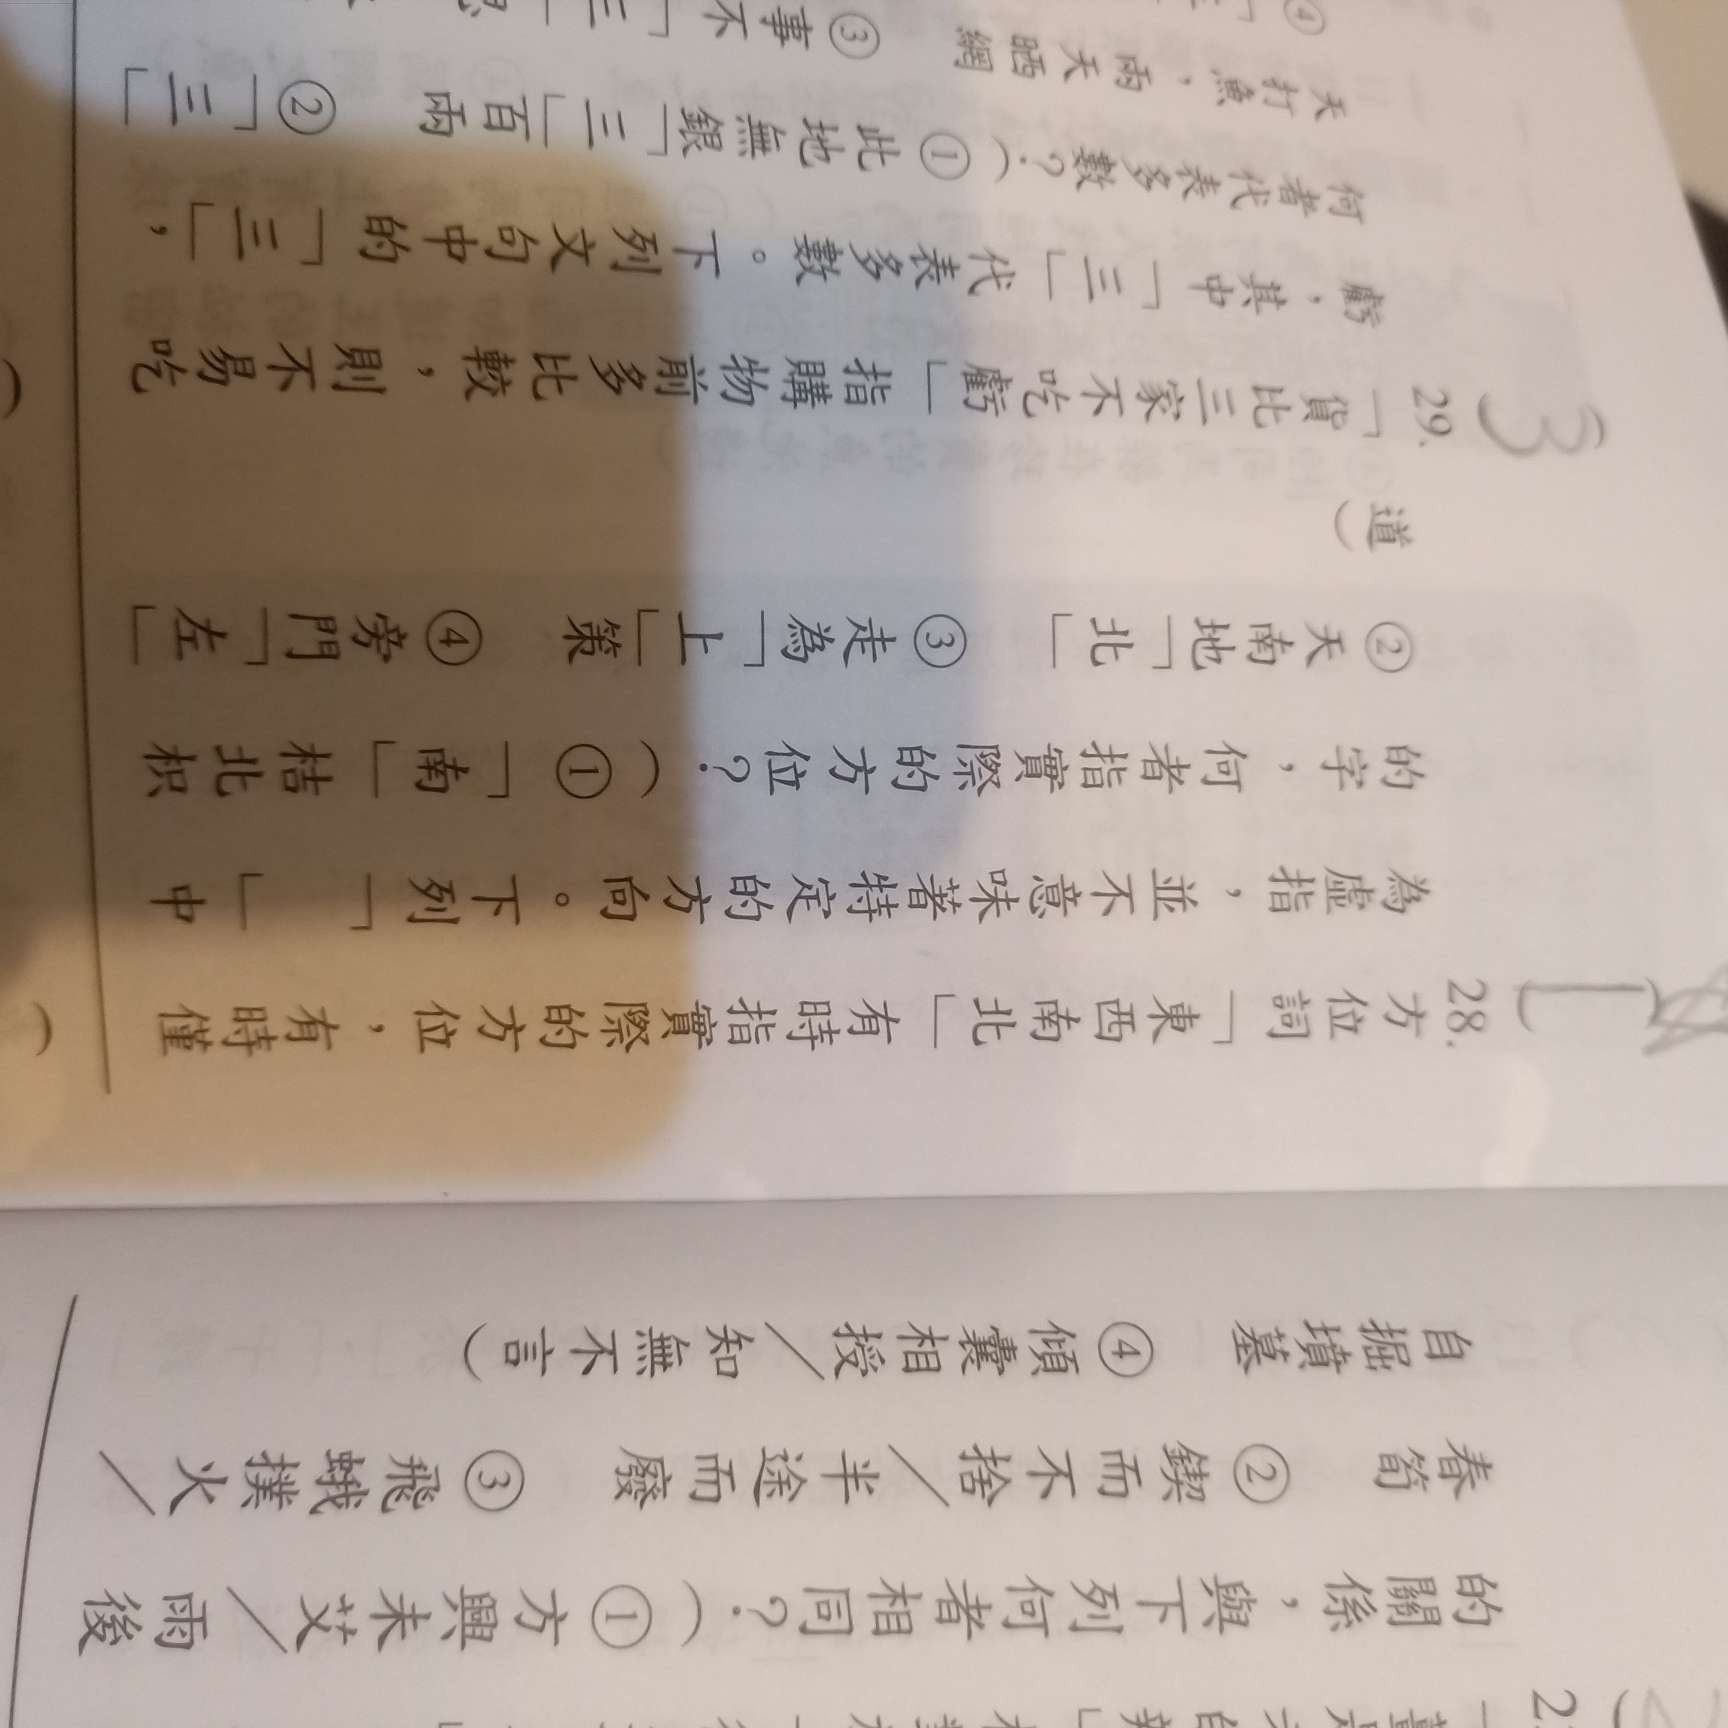 的關係,與下列何者相同?(①方興未艾/雨後
春筍 ②鍥而不捨/半途而廢 ③飛蛾撲火/
自掘墳墓 ④傾囊相授/知無不言)
28. 方位詞「東西南北」有時指實際的方位,有時僅
為虛指,並不意味著特定的方向。下列「 」中
的字,何者指實際的方位?(①「南」桔北枳
②天南地「北」 ③走為「上」策 ④旁門「左」
道)
3 29.「貨比三家不吃虧」指購物前多比較,則不易吃
虧,其中「三」代表多數。下列文句中的「三」,
何者代表多數?(①此地無銀「三」百兩 ②「三」
天打魚,兩天晒網 ③事不「三」
④